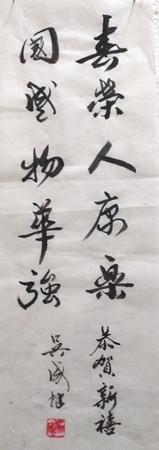 春榮人康樂
國盛物華強
恭賀新禧
吳成